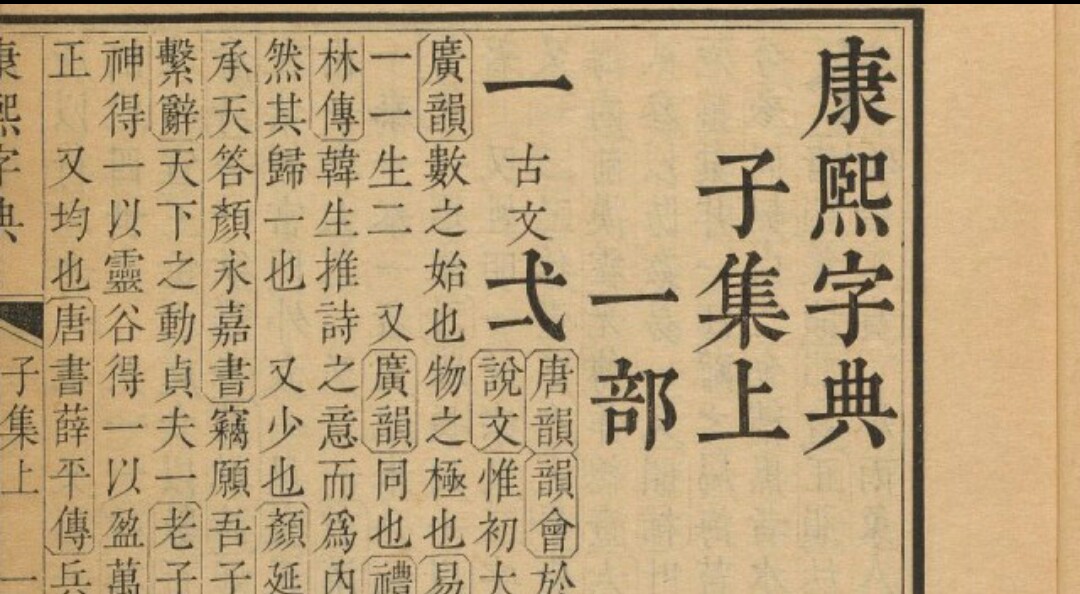 康熙字典
子集上
一部
一 古文 弌
唐韻韻會於
說文惟初大
廣韻數之始也物之極也易
一一生二 又廣韻同也禮
林傳韓生推詩之意而爲內
然其歸一也 又少也顏延
承天答顏永嘉書竊願吾子
繫辭天下之動貞夫一老子
神得一以靈谷得一以盈萬
正 又均也唐書薛平傳兵
康熙字典 子集上 一